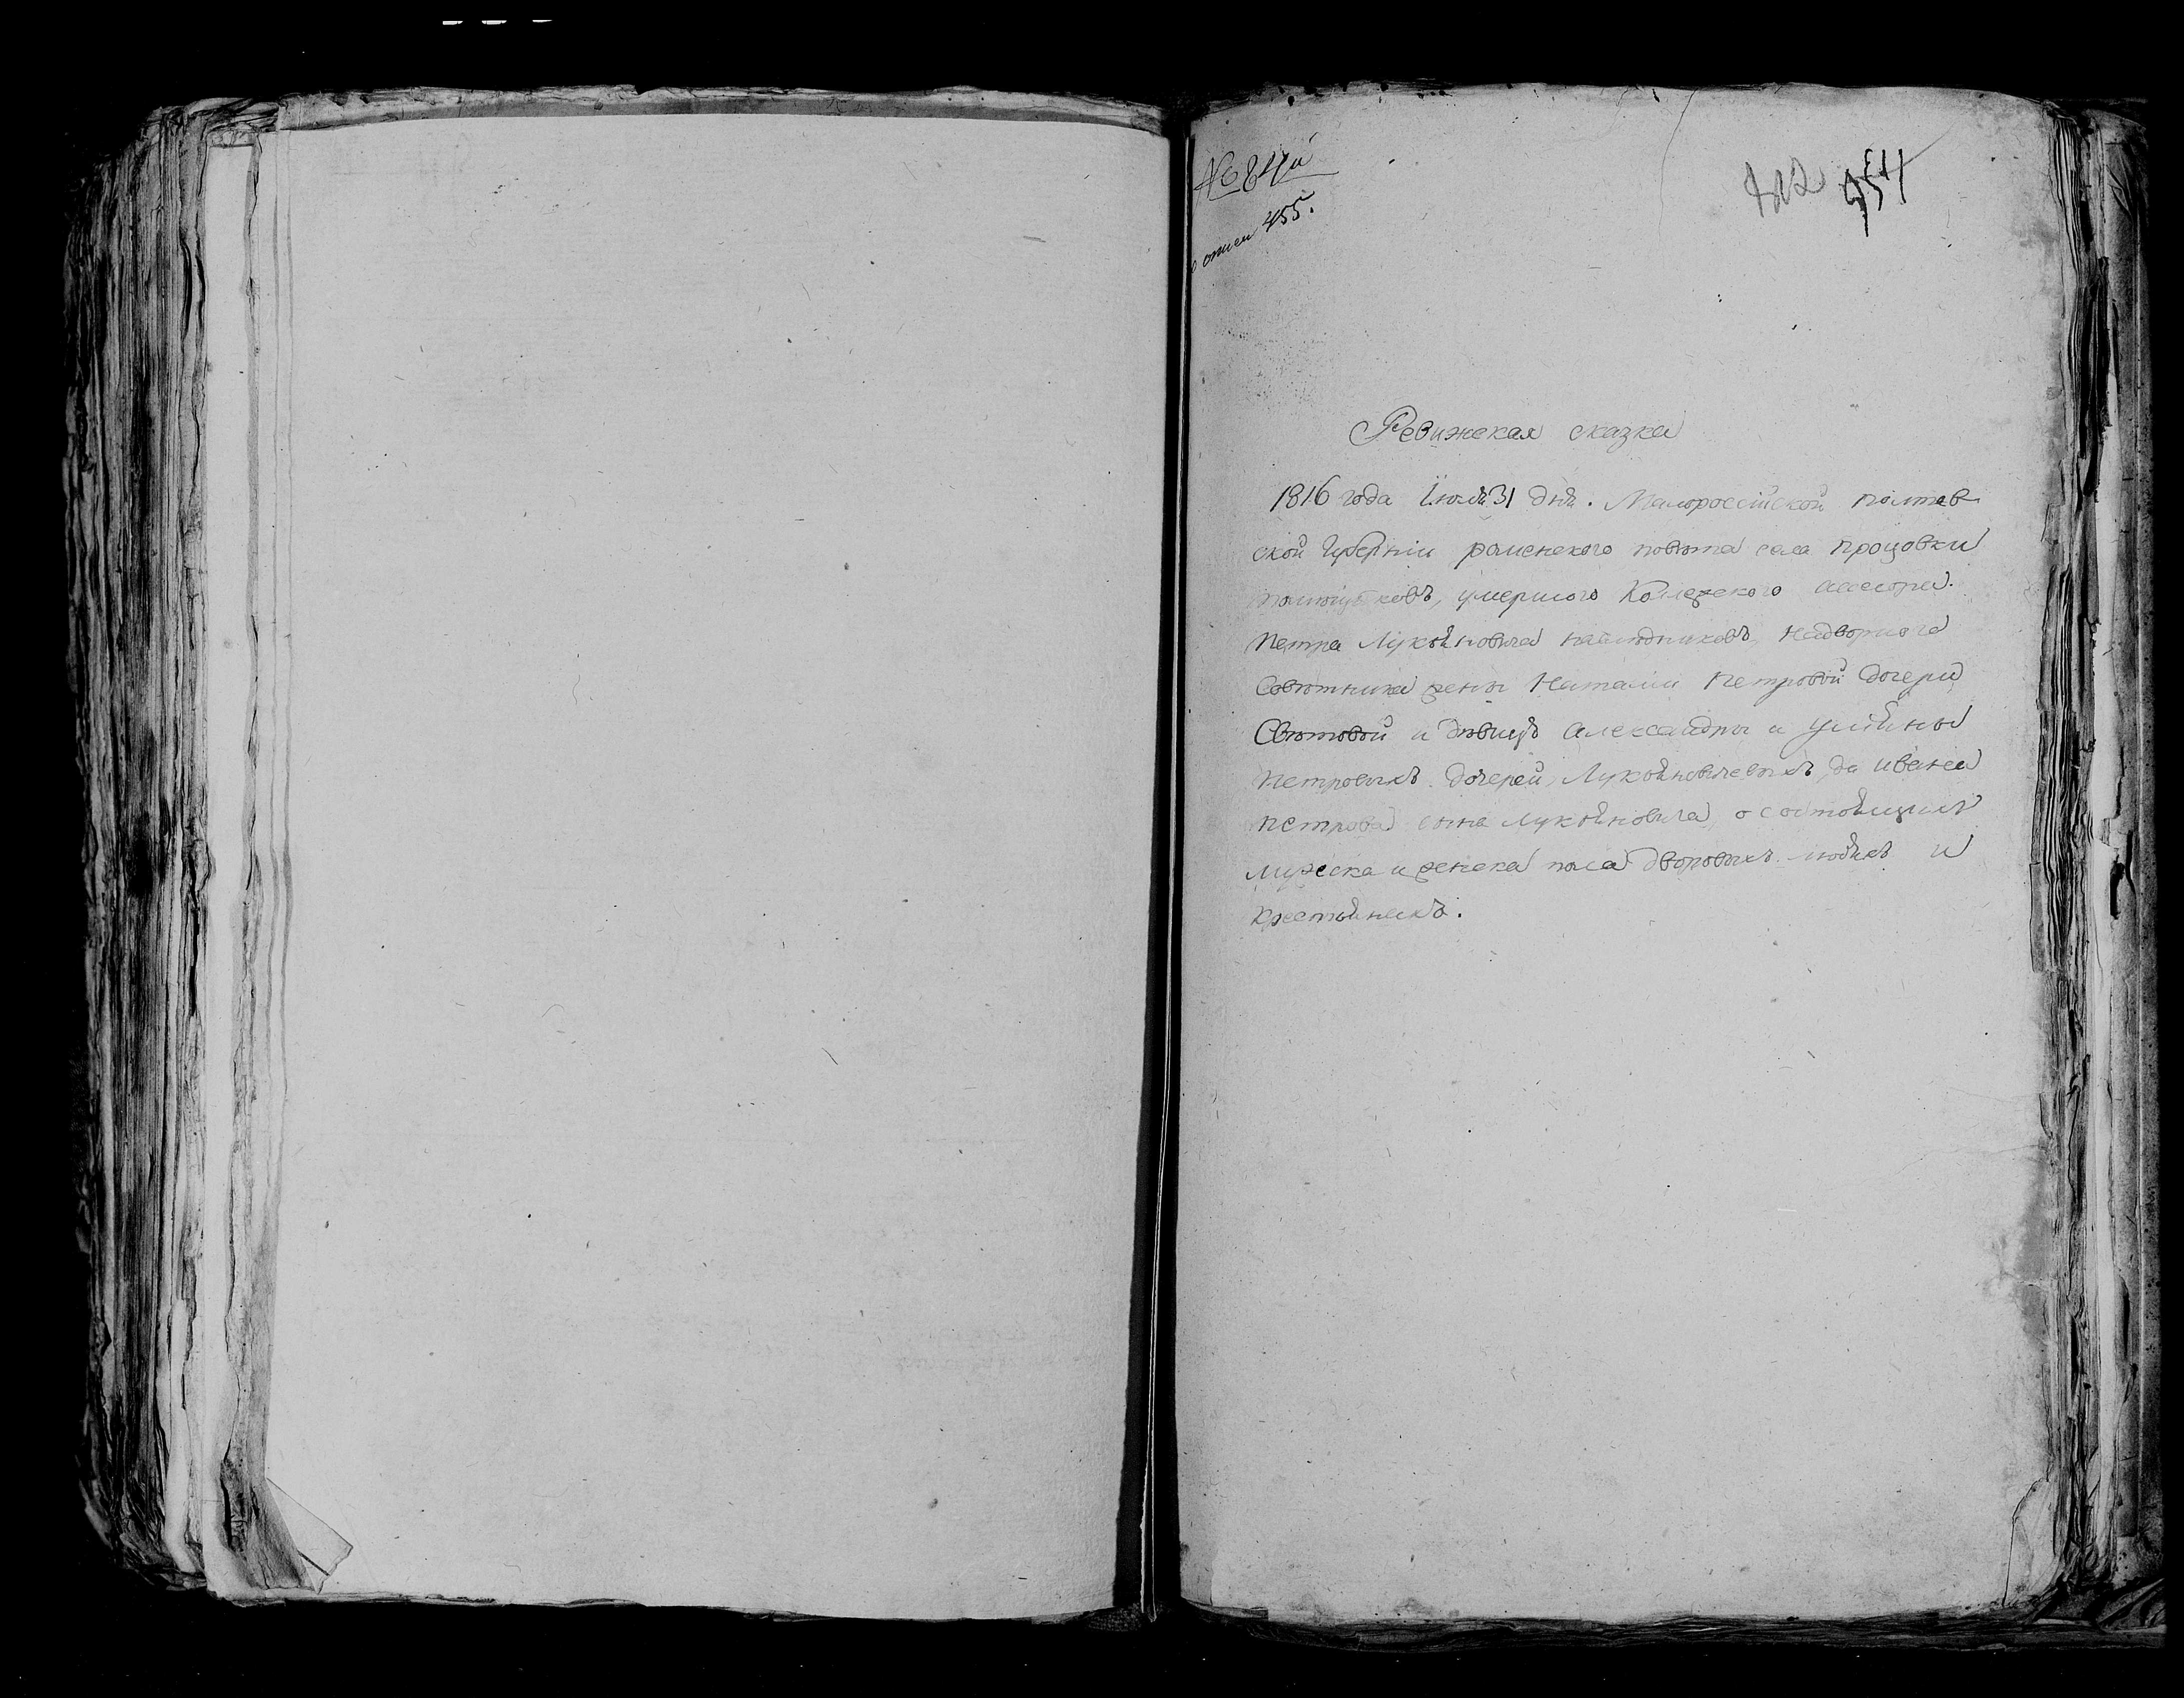 № 84й
455.
412 454
Ревижская сказка
1816 года Июля 31 дня. Малороссійской полтав
ской Губерніи роменского повѣта села процовки
умершого Колежского асесора
Петра Лукяновича наслѣдниковъ, надворного
Совѣтника жены Наталіи Петровой дочери
Свѣтовой и дѣвицъ Александры и Улияны
Петровыхъ дочерей, Лукяновичевыхъ, да ивана
петрова сына лукяновича, о состоящихъ
мужеска и женска пола дворовыхъ людяхъ и
крестьянехъ.